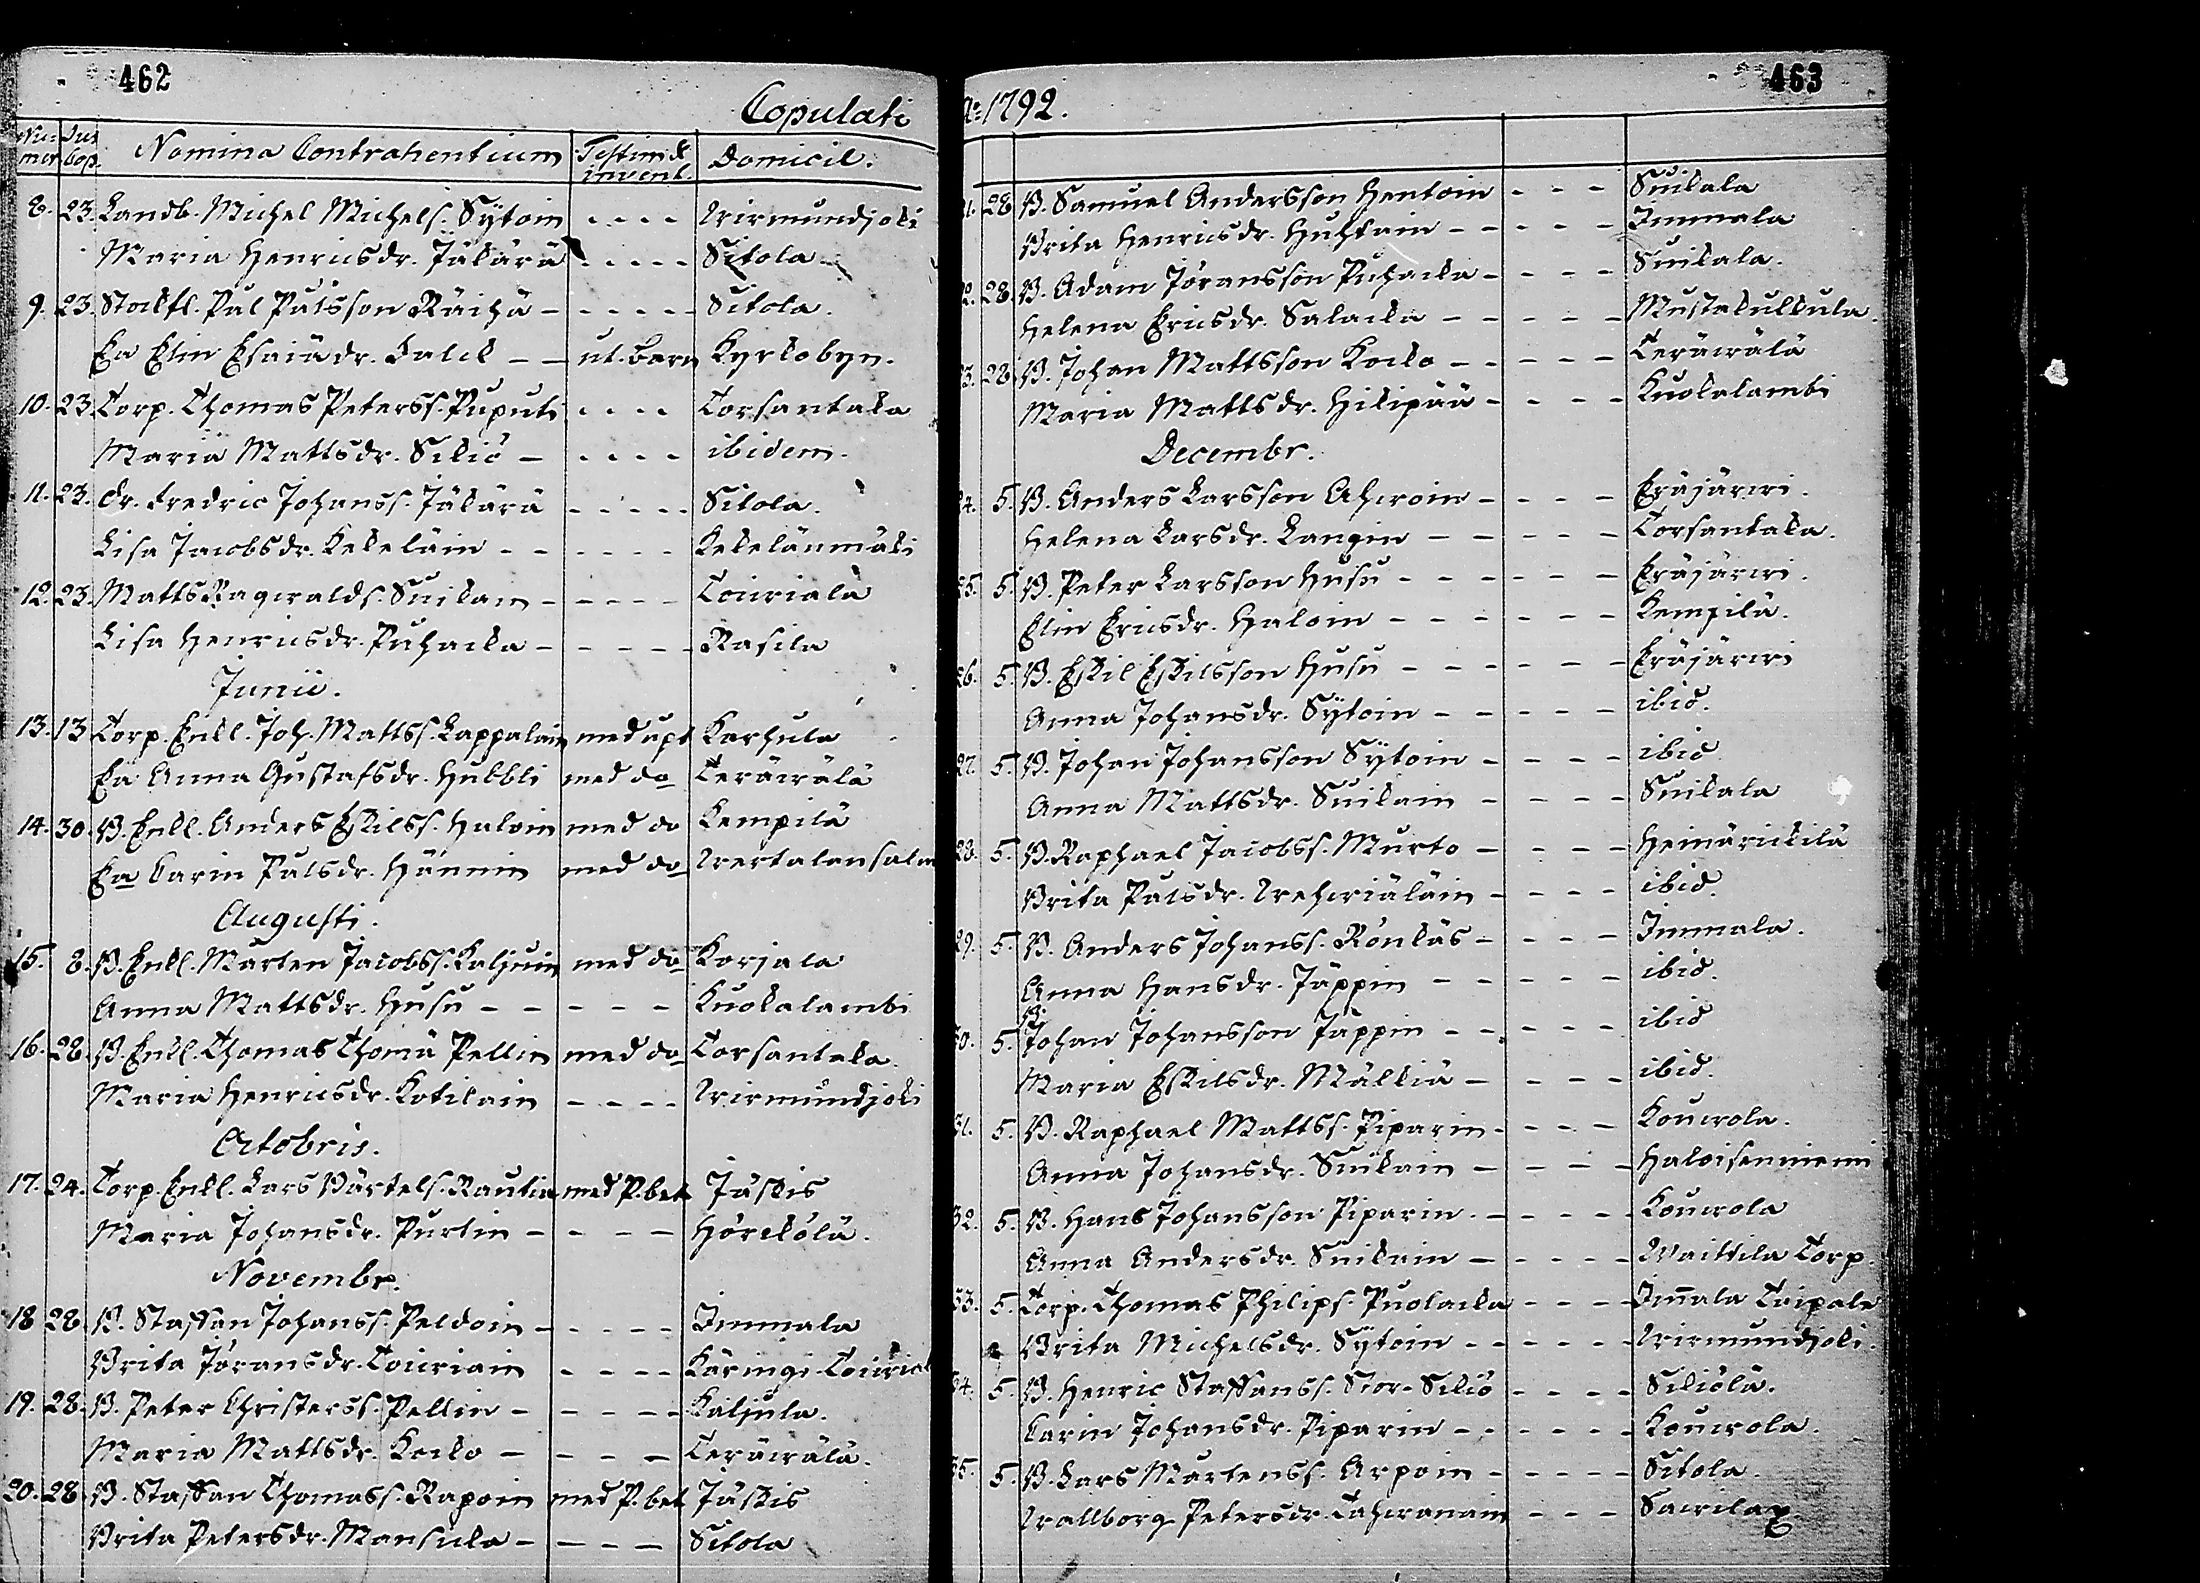 462
Copulati
Nu- mer Dies Cop. Nomina Contrahentium Testim & invent. Domicil.
8. 23. Landb. Michel Michels. Sÿtoin - - - - Wirmundjoki
Maria Henricsdr. Jäkärä - - - - - Sitola
9. 23. Pål Pålsson Räihä - - - - - Sitola.
Ea Elin Esaiædr. Falck - - ut. barn Kyrkobyn.
10. 23. Torp. Thomas Peterss. Puputi - - - - Torsantaka
Maria Mattsdr. Siliö - - - - - ibidem.
11. 23. dr. Fredric Johanss. Jäkärä - - - - - Sitola.
Lisa Jacobsdr. Kekeläin - - - - - - Kekelänmäki
12. 23. Matts Ragwalds. Suikain - - - - - Touriala
Lisa Henricsdr. Puhacka - - - - - Rasila
Junii.
13. 13 Torp. Enkl. Joh. Mattss. Lappalain med upt Karhula
Ea Anna Gustafsdr. Hubbli med do Teräwälä
14. 30. B. Enkl. Anders Eskilss. Haloin med do Kempilä
Ea Carin Pålsdr. Hännin med do
Augusti.
15. 8. B. Enkl. Mårten Jacobss. Kaljuin med do Korjala
Anna Mattsdr. Husu - - - - - Kuokalambi
16. 28. B. Enkl. Thomas Thomæ Pellin med do Torsantaka.
Maria Henricsdr. Kotilain - - - - Wirmundjoki
Octobris.
17. 24. Torp. Enkl. Lars Bärtels. Rautia med P. bet Jäskis
Maria Johansdr. Purtin - - - - Hörckölä.
Novembr.
18 28. B. Staffan Johanss. Peldoin - - - - - Immala
Brita Jöransdr. Touriain - - - - Käringi Tourial
19. 28. B. Peter Christerss. Pellin - - - - - Kaljula.
Maria Mattsdr. Kocko - - - - Teräwälä.
20. 28. B. Staffan Thomass. Rapoin med P. bet Jäskis
Brita Petersdr. Mansicka - - - - Sitola
463
Ao 1792.
21. 28 B. Samuel Andersson Hentoin - - - Suikala
Brita Henricsdr. Huhtain - - - - - Immala
22. 28. B. Adam Jöransson Puhacka - - - - Suikala.
Helena Ericsdr. Salacka - - - - - Mustakulkula.
23. 28 B. Johan Mattsson Kocko - - - - - Teräwälä
Maria Mattsdr. Hikipää - - - - Kuokalambi
Decembr.
24. 5. B. Anders Larsson Ahwoin - - - - Eräjärwi.
Helena Larsdr. Langin - - - - - Torsantaka.
25. 5. B. Peter Larsson Husu - - - - - - Eräjärwi.
Elin Ericsdr. Haloin - - - - - - Kempilä.
26. 5. B. Eskil Eskilsson Husu - - - - - - Eräjärwi
Anna Johansdr. Sÿtoin - - - - - ibid.
27. 5. B. Johan Johansson Sÿtoin - - - - ibid
Anna Mattsdr. Suikain - - - - Suikala
28. 5. B. Raphael Jacobss. Murto - - - - Heinärickilä
Brita Pålsdr. Wehwiäläin - - - - ibid.
29. 5. B. Anders Johanss. Rönkäs - - - - Immala.
Anna Hansdr. Jäppin - - - - - ibid.
30. 5. B. Johan Johansson Jäppin - - - - - ibid
Maria Eskilsdr. Mälkiä - - - - ibid.
31. 5. B. Raphael Mattss. Piparin - - - - Kouwola.
Anna Johansdr. Suikain - - - - Haloisenniemi
32. 5. B. Hans Johansson Piparin. - - - - Kouwola
Anna Andersdr. Suikain - - - - - Waittila Torp.
33. 5. Torp. Thomas Philips. Puolacka - - - Imala Taipale
Brita Michelsdr. Sÿtoin - - - - - - Wirmundjoki.
34. 5. B. Henric Staffanss. Stor-Siliö - - - - Siliölä.
Carin Johansdr. Piparin - - - - - - Kouwola.
35. 5. B. Lars Mårtenss. Arpoin - - - - - Sitola.
Wallborg Petersdr. Tahwanain - - - Sawilax